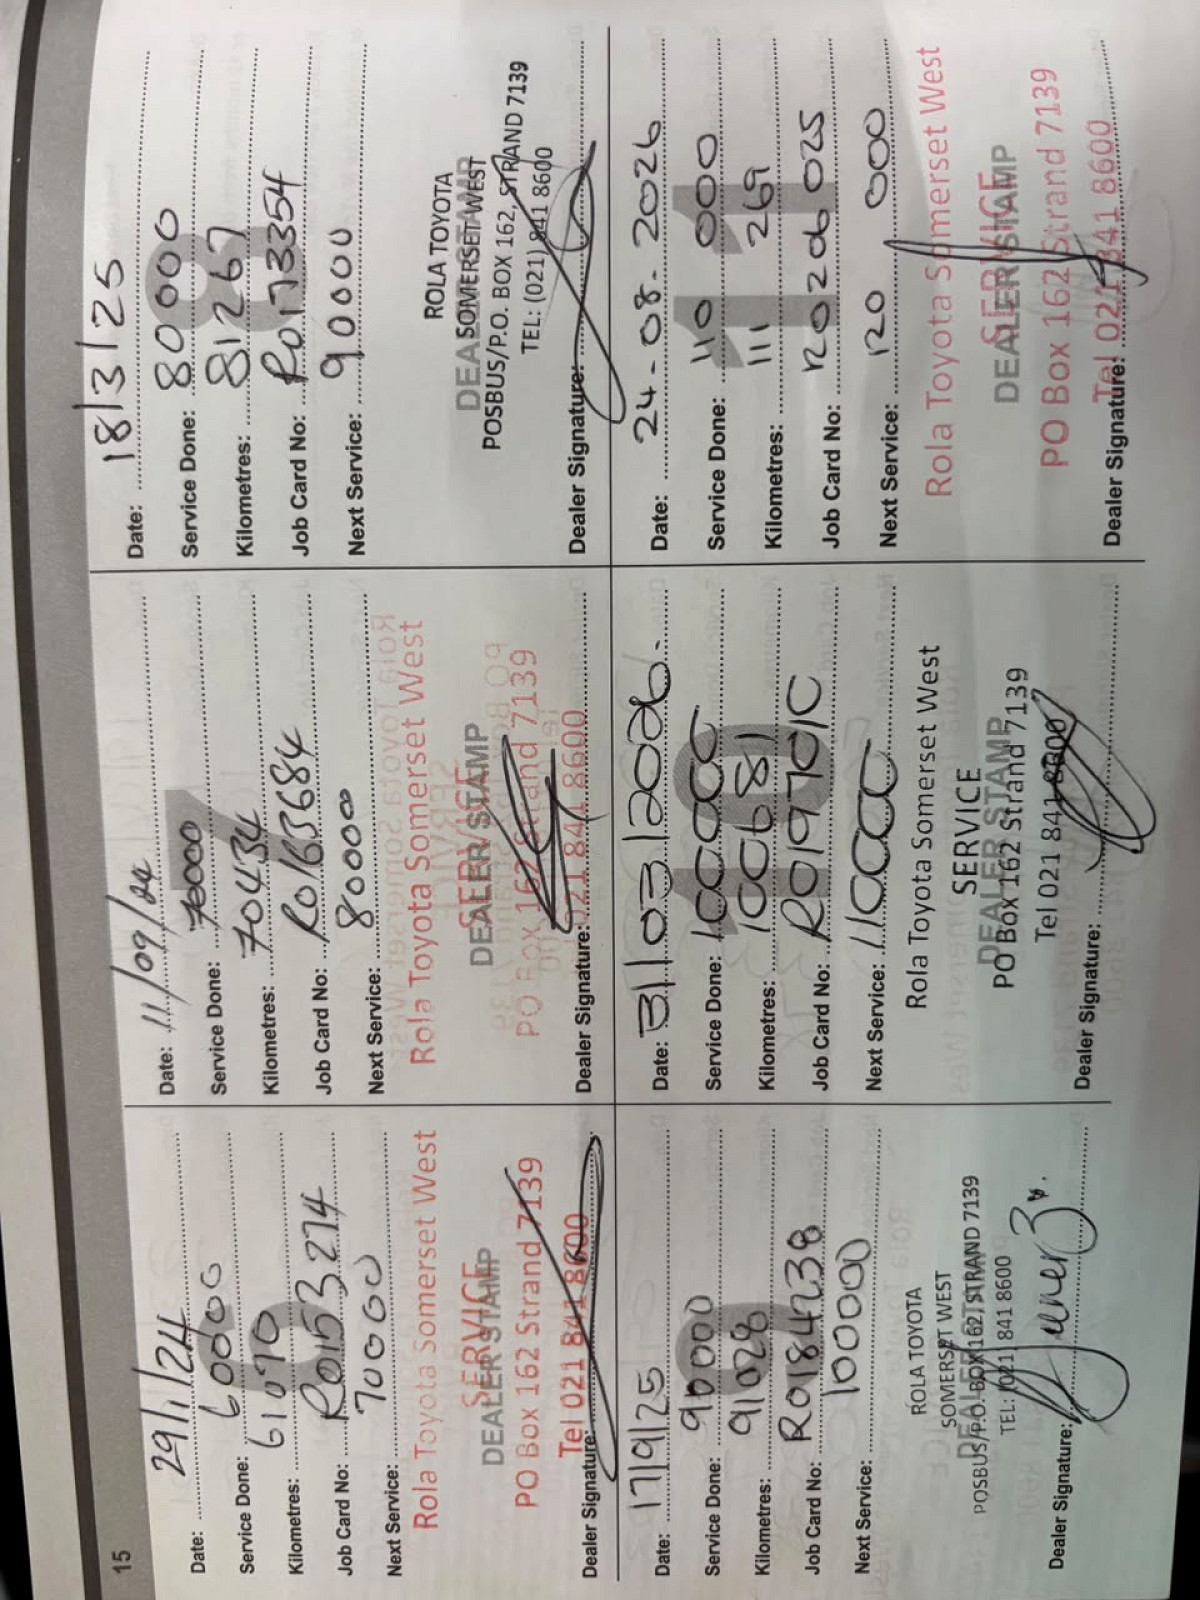 15
6
Date: 29/1/24
Service Done: 60000
Kilometres: 61070
Job Card No: R0153274
Next Service: 70000
Rola Toyota Somerset West
SERVICE
DEALER STAMP
PO Box 162 Strand 7139
Tel 021 841 8600
Dealer Signature:
7
Date: 11/09/24
Service Done: 70000
Kilometres: 70434
Job Card No: R0163684
Next Service: 80000
Rola Toyota Somerset West
SERVICE
DEALER STAMP
PO Box 162 Strand 7139
021 841 8600
Dealer Signature:
8
Date: 18/3/25
Service Done: 80000
Kilometres: 81267
Job Card No: R0173354
Next Service: 90000
ROLA TOYOTA
SOMERSET WEST
DEALER STAMP
POSBUS/P.O. BOX 162, STRAND 7139
TEL: (021) 841 8600
Dealer Signature:
9
Date: 17/9/25
Service Done: 90000
Kilometres: 91028
Job Card No: R0184238
Next Service: 100000
ROLA TOYOTA
SOMERSET WEST
DEALER STAMP
POSBUS/P.O. BOX 162, STRAND 7139
TEL: (021) 841 8600
Dealer Signature:
10
Date: 31/03/2026.
Service Done: 100000
Kilometres: 100681
Job Card No: R0197010
Next Service: 110000
Rola Toyota Somerset West
SERVICE
DEALER STAMP
PO Box 162 Strand 7139
Tel 021 841 8600
Dealer Signature:
11
Date: 24-08-2026
Service Done: 110 000
Kilometres: 111 269
Job Card No: R0206025
Next Service: 120 000
Rola Toyota Somerset West
SERVICE
DEALER STAMP
PO Box 162 Strand 7139
Tel 021 841 8600
Dealer Signature: